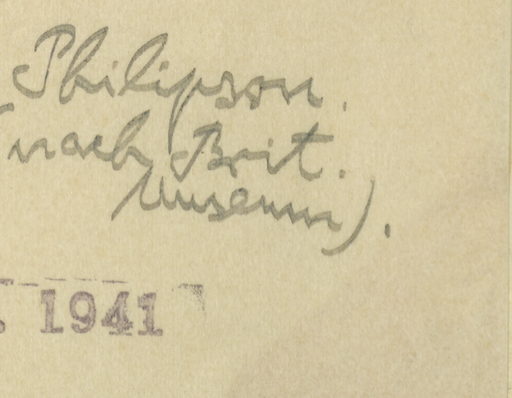 Philipson.
(nach Brit.
Museum).
. 1941